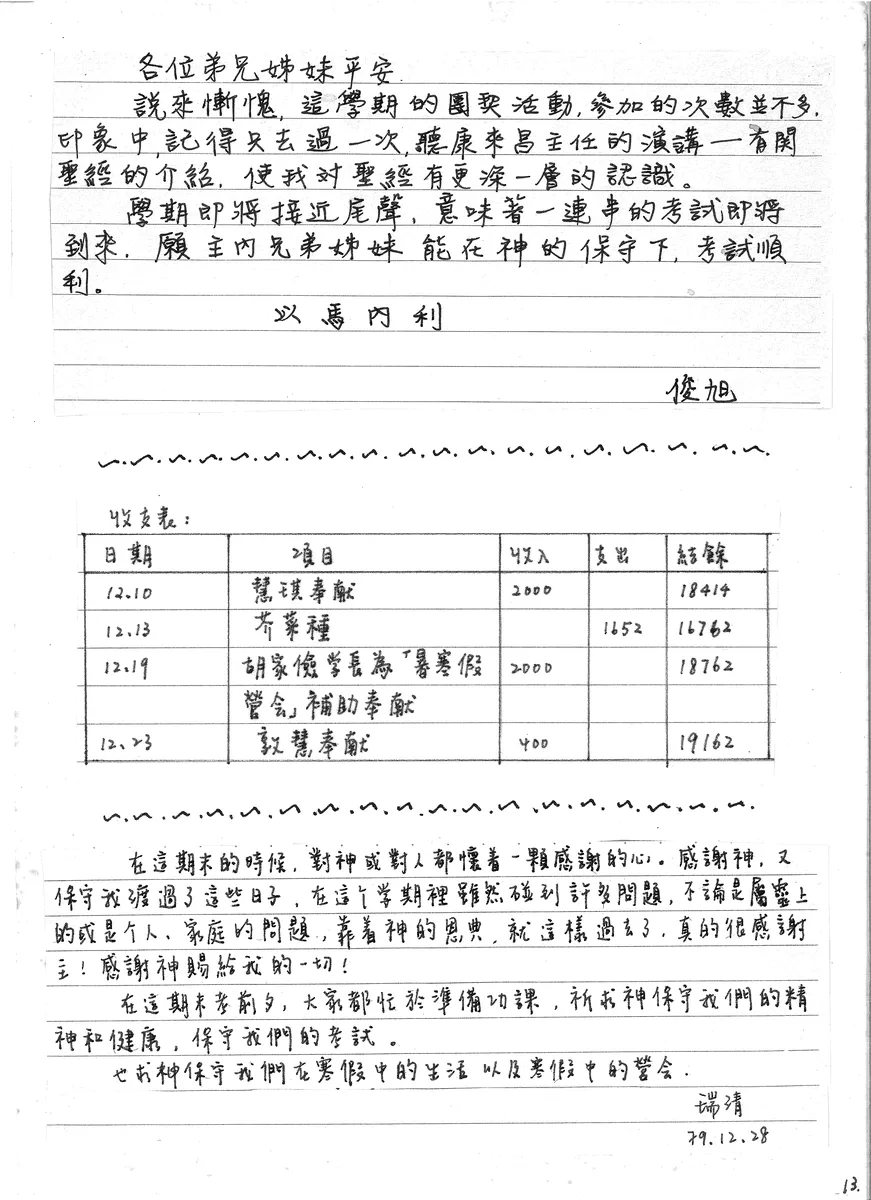 各位弟兄姊妹平安
說來慚愧,這學期的團契活動,參加的次數並不多,
印象中,記得只去過一次,聽康來昌主任的演講—有関
聖經的介紹,使我対聖經有更深一層的認識。
學期即將接近尾聲,意味著一連串的考試即將
到來,願主內兄弟姊妹能在神的保守下,考試順
利。
以馬內利
俊旭
收支表:
日期 項目 收入 支出 結餘
12.10 慧琪奉献 2000 18414
12.13 芥菜種 1652 16762
12.19 胡家儉学長為「暑寒假 2000 18762
營会」補助奉献
12.23 敦慧奉献 400 19162
在這期末的時候,對神或對人都懷着一顆感謝的心。感謝神,又
保守我渡過了這些日子,在這个学期裡雖然碰到許多問題,不論是屬靈上
的或是个人、家庭的問題,靠着神的恩典,就這樣過去了,真的很感謝
主!感謝神賜給我的一切!
在這期末考前夕,大家都忙於準備功課,祈求神保守我們的精
神和健康,保守我們的考試。
也求神保守我們在寒假中的生活以及寒假中的營会.
瑞清
79.12.28
13.